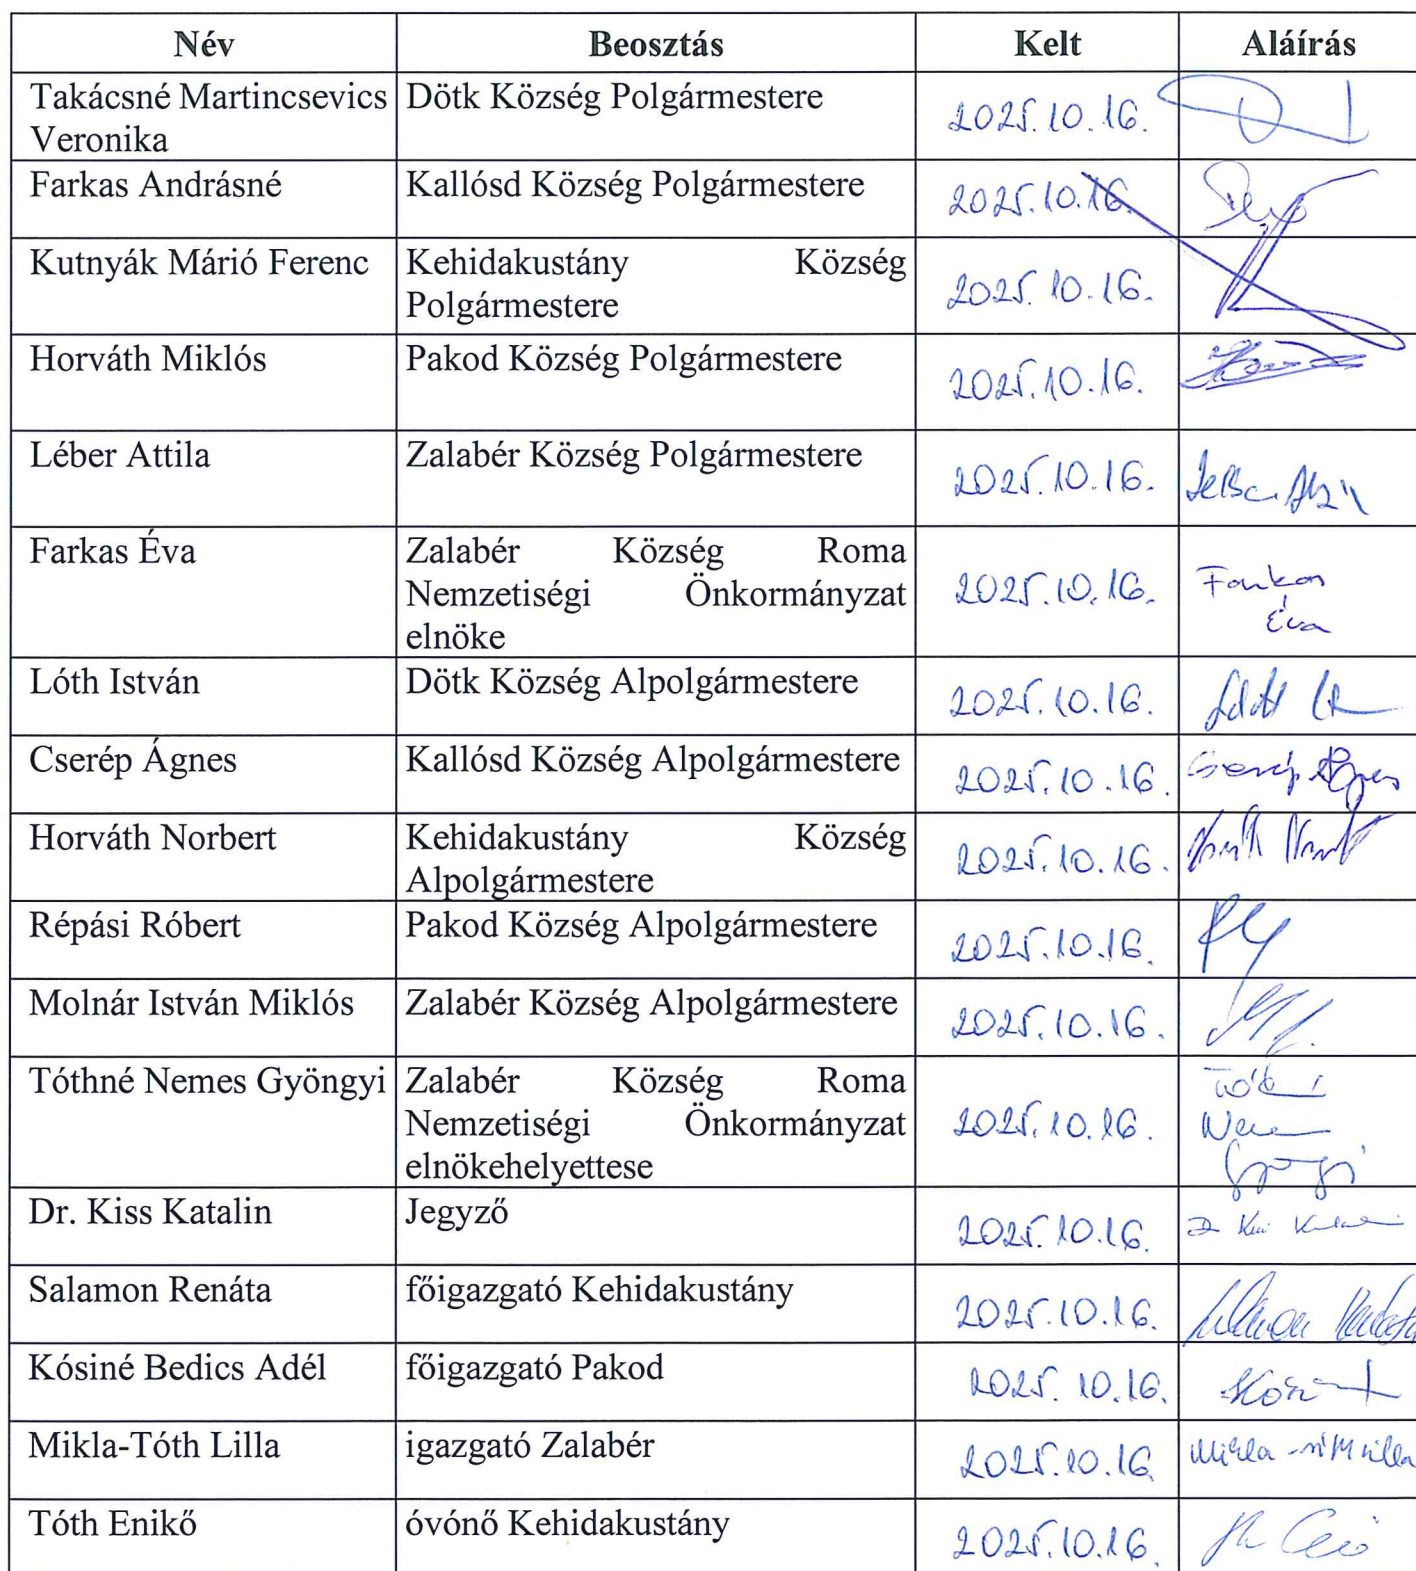 Név Beosztás Kelt Aláírás
Takácsné Martincsevics Dötk Község Polgármestere 2025.10.16.
Veronika
Farkas Andrásné Kallósd Község Polgármestere 2025.10.16.
Kutnyák Márió Ferenc Kehidakustány Község 2025.10.16.
Polgármestere
Horváth Miklós Pakod Község Polgármestere 2025.10.16.
Léber Attila Zalabér Község Polgármestere 2025.10.16.
Farkas Éva Zalabér Község Roma
Nemzetiségi Önkormányzat 2025.10.16. Farkas
elnöke Éva
Lóth István Dötk Község Alpolgármestere 2025.10.16.
Cserép Ágnes Kallósd Község Alpolgármestere 2025.10.16. Cserép Ágnes
Horváth Norbert Kehidakustány Község 2025.10.16.
Alpolgármestere
Répási Róbert Pakod Község Alpolgármestere 2025.10.16.
Molnár István Miklós Zalabér Község Alpolgármestere 2025.10.16.
Tóthné Nemes Gyöngyi Zalabér Község Roma
Nemzetiségi Önkormányzat 2025.10.16.
elnökehelyettese
Dr. Kiss Katalin Jegyző 2025.10.16.
Salamon Renáta főigazgató Kehidakustány 2025.10.16.
Kósiné Bedics Adél főigazgató Pakod 2025.10.16.
Mikla-Tóth Lilla igazgató Zalabér 2025.10.16.
Tóth Enikő óvónő Kehidakustány 2025.10.16.